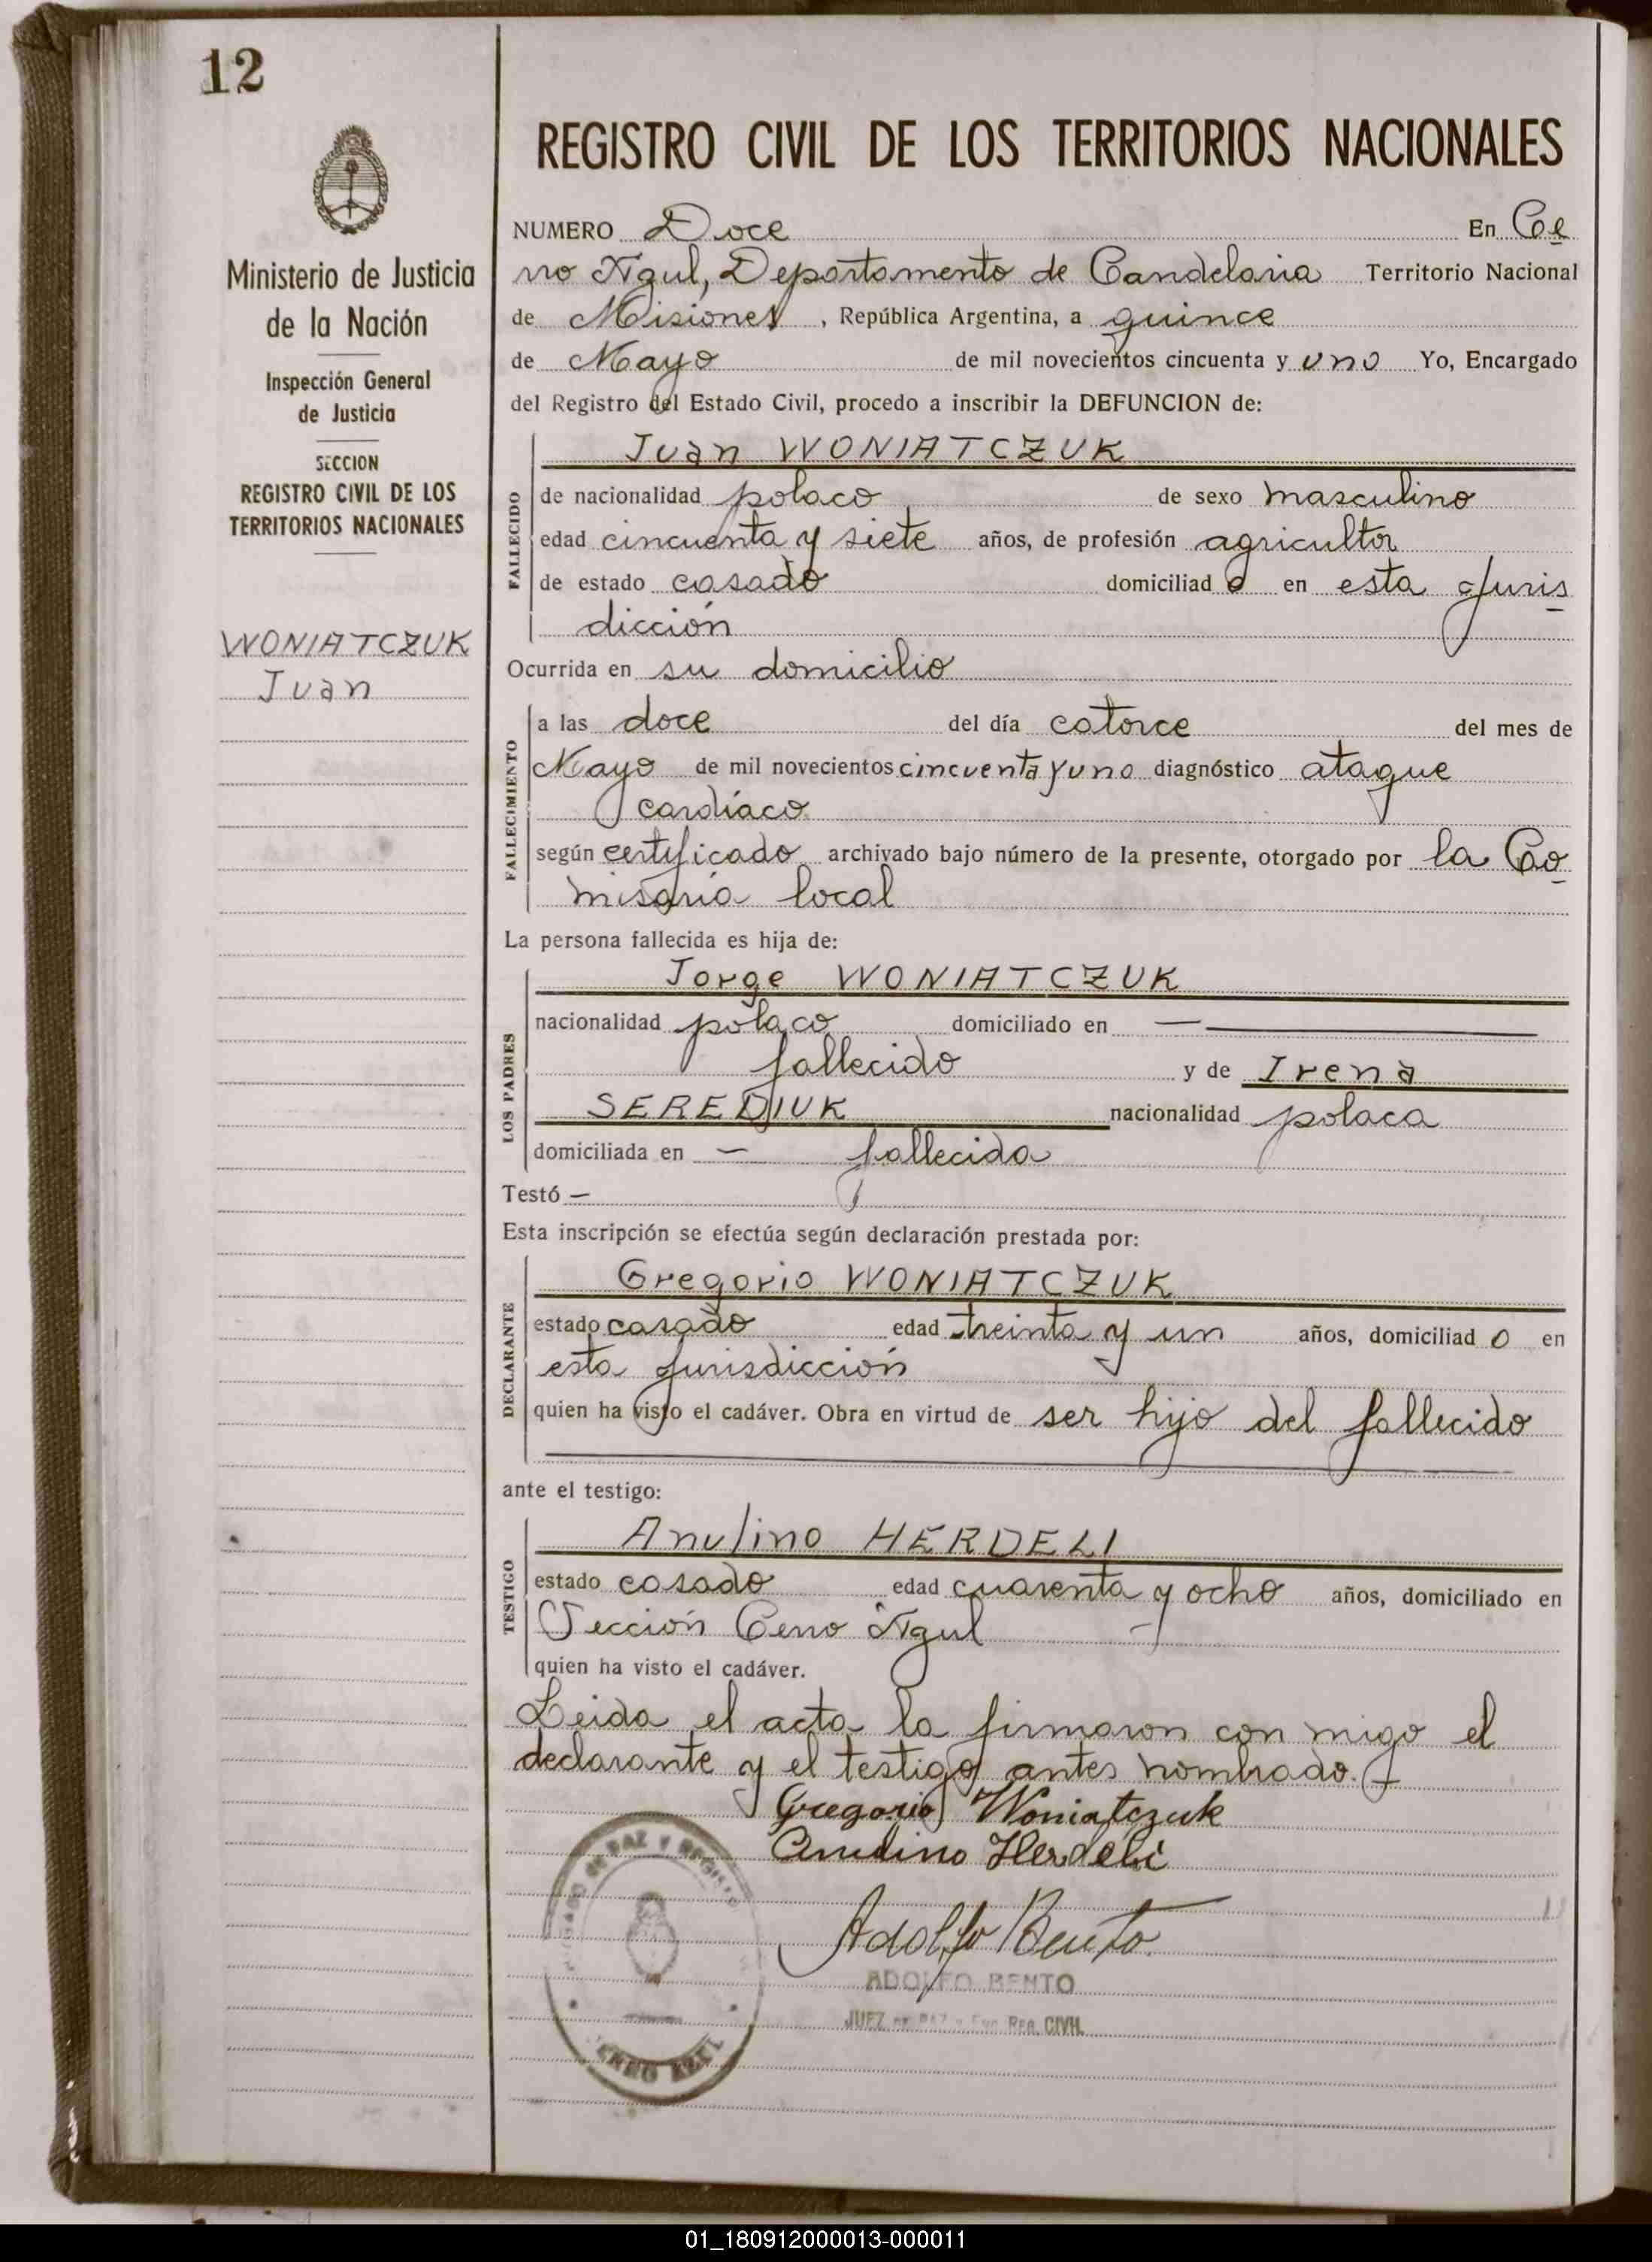 12
Ministerio de Justicia
de la Nación
Inspección General
de Justicia
SECCION
REGISTRO CIVIL DE LOS
TERRITORIOS NACIONALES
WONIATCZUK
Juan
REGISTRO CIVIL DE LOS TERRITORIOS NACIONALES
NUMERO Doce En Ce
rro Azul, Departamento de Candelaria Territorio Nacional
de Misiones, República Argentina, a quince
de Mayo de mil novecientos cincuenta y uno Yo, Encargado
del Registro del Estado Civil, procedo a inscribir la DEFUNCION de:
FALLECIDO
Juan WONIATCZUK
de nacionalidad polaco de sexo masculino
edad cincuenta y siete años, de profesión agricultor
de estado casado domiciliado en esta Juris
dicción
Ocurrida en su domicilio
FALLECIMIENTO
a las doce del día catorce del mes de
Mayo de mil novecientos cincuenta y uno diagnóstico ataque
cardíaco
según certificado archivado bajo número de la presente, otorgado por la Co
misaría local
La persona fallecida es hija de:
LOS PADRES
Jorge WONIATCZUK
nacionalidad polaco domiciliado en —
fallecido y de Irena
SEREDIUK nacionalidad polaca
domiciliada en — fallecida
Testó —
Esta inscripción se efectúa según declaración prestada por:
DECLARANTE
Gregorio WONIATCZUK
estado casado edad treinta y un años, domiciliado en
esta Jurisdicción
quien ha visto el cadáver. Obra en virtud de ser hijo del fallecido
ante el testigo:
TESTIGO
Anulino HERDELI
estado casado edad cuarenta y ocho años, domiciliado en
Sección Cerro Azul
quien ha visto el cadáver.
Leida el acta la firmaron con migo el
declarante y el testigo antes nombrado.
Gregorio Woniatczuk
Anulino Herdeli
Adolfo Bento
ADOLFO BENTO
JUEZ DE PAZ y Enc. REG. CIVIL
JUZGADO DE PAZ Y REGISTRO
CERRO AZUL
01_180912000013-000011